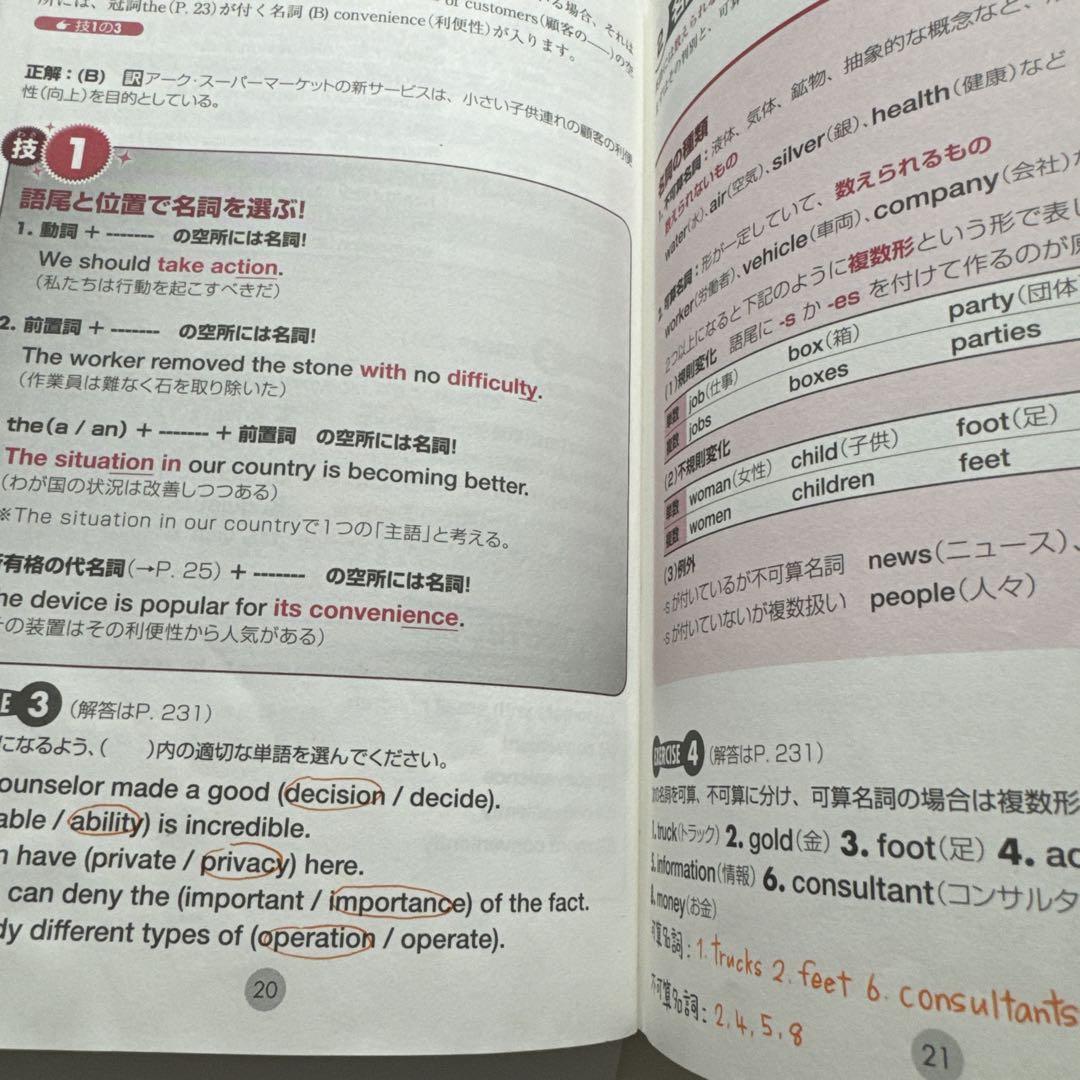 所には、冠詞the(P. 23)が付く名詞(B) convenience(利便性)が入ります。
of customers(顧客の──)の空
る場合、それは
技1の3
正解:(B) 訳 アーク・スーパーマーケットの新サービスは、小さい子供連れの顧客の利便
性(向上)を目的としている。
技 1
語尾と位置で名詞を選ぶ!
1. 動詞 + ------- の空所には名詞!
We should take action.
(私たちは行動を起こすべきだ)
2. 前置詞 + ------- の空所には名詞!
The worker removed the stone with no difficulty.
(作業員は難なく石を取り除いた)
the(a / an) + ------- + 前置詞 の空所には名詞!
The situation in our country is becoming better.
(わが国の状況は改善しつつある)
※The situation in our countryで1つの「主語」と考える。
有格の代名詞(→P. 25) + ------- の空所には名詞!
he device is popular for its convenience.
の装置はその利便性から人気がある)
E 3 (解答はP. 231)
になるよう、( )内の適切な単語を選んでください。
ounselor made a good (decision / decide).
able / ability) is incredible.
have (private / privacy) here.
can deny the (important / importance) of the fact.
dy different types of (operation / operate).
20
名詞の種類
1. 不可算名詞:液体、気体、鉱物、抽象的な概念など、
数えられないもの
water(水)、air(空気)、silver(銀)、health(健康)など
2. 可算名詞:形が一定していて、数えられるもの
worker(労働者)、vehicle(車両)、company(会社)
2つ以上になると下記のように複数形という形で表し
(1)規則変化 語尾に -s か -es を付けて作るのが原
単数 job(仕事) box(箱) party(団体
複数 jobs boxes parties
(2)不規則変化
単数 woman(女性) child(子供) foot(足)
複数 women children feet
(3)例外
-sが付いているが不可算名詞 news(ニュース)、
-sが付いていないが複数扱い people(人々)
EXERCISE 4 (解答はP. 231)
の名詞を可算、不可算に分け、可算名詞の場合は複数形
1. truck(トラック) 2. gold(金) 3. foot(足) 4. ad
5. information(情報) 6. consultant(コンサルタ
8. money(お金)
可算名詞: 1. trucks 2. feet 6. consultants
不可算名詞: 2, 4, 5, 8
21